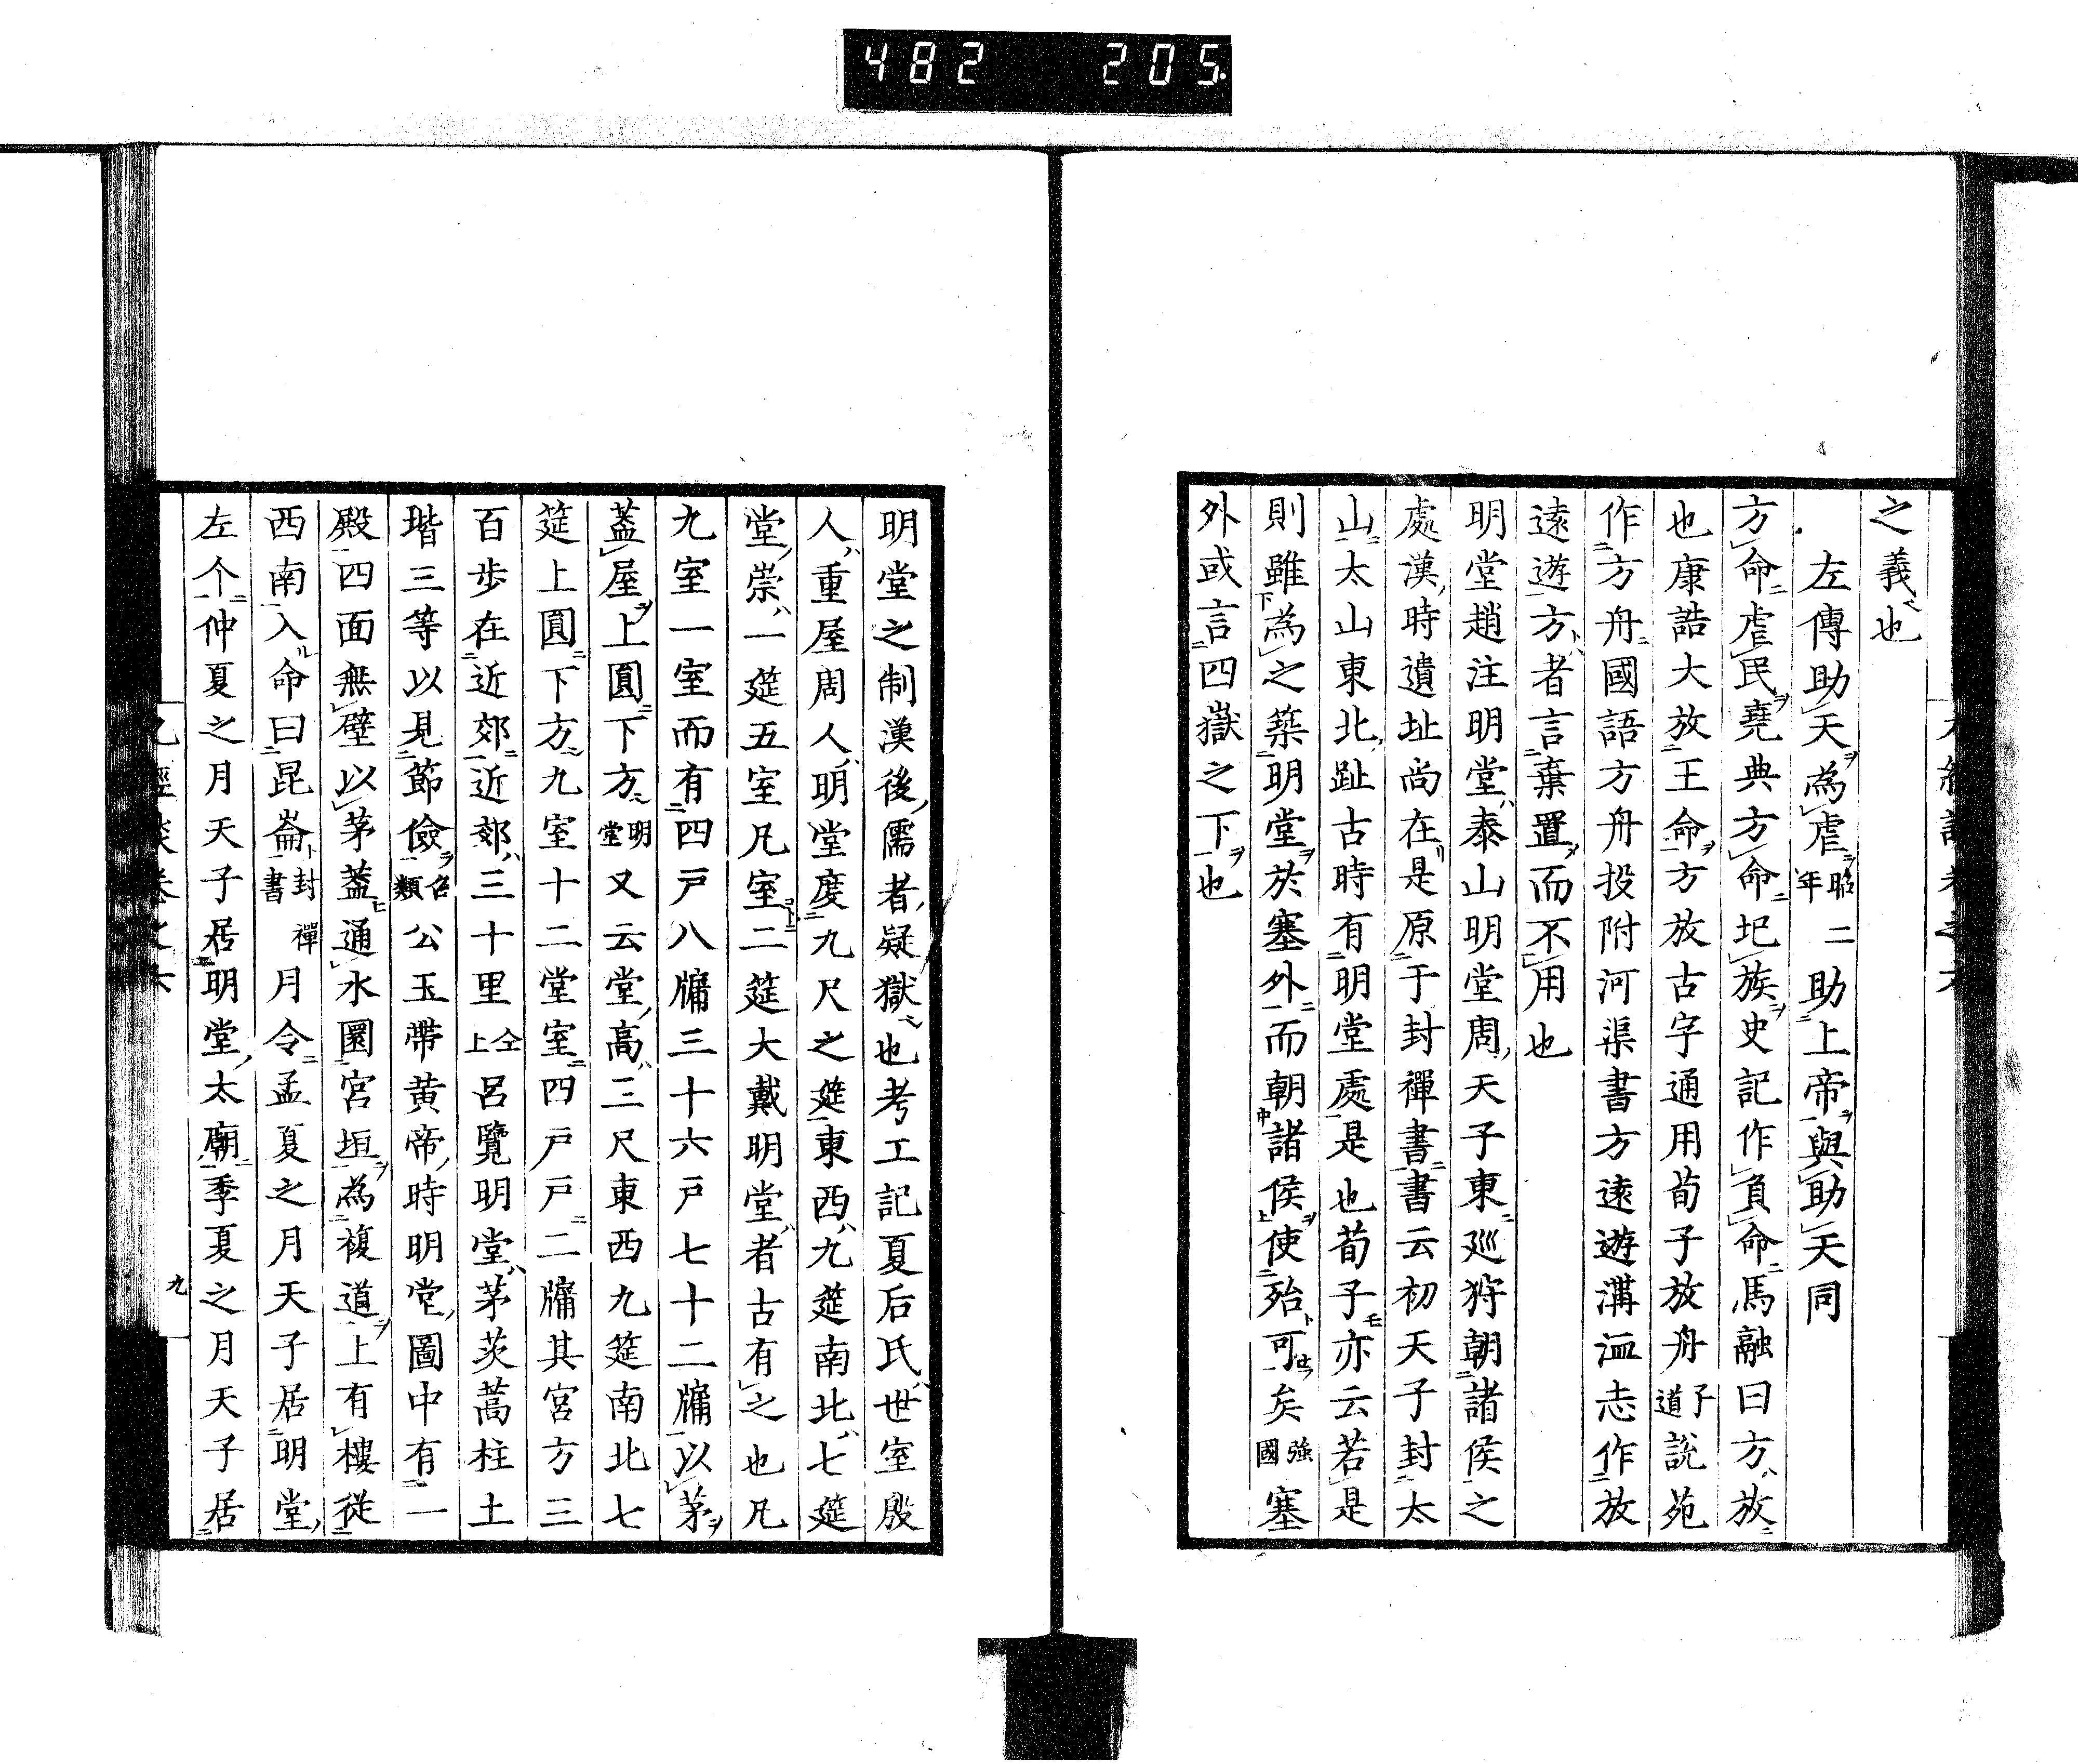 482 205
之義也
左傳助天為虐昭二年助上帝與助天同
方命虐民堯典方命圯族史記作負命馬融曰方放
也康誥大放王命方放古字通用荀子放舟子道說苑
作方舟國語方舟投附河渠書方遠遊溝洫志作放
遠遊方者言棄置而不用也
明堂趙注明堂泰山明堂周天子東巡狩朝諸侯之
處漢時遺址尚在是原于封禪書書云初天子封太
山太山東北趾古時有明堂處是也荀子亦云若是
則雖為之築明堂於塞外而朝諸侯使殆可矣強國塞
外或言四嶽之下也
明堂之制漢後儒者疑獄也考工記夏后氏世室殷
人重屋周人明堂度九尺之筵東西九筵南北七筵
堂崇一筵五室凡室二筵大戴明堂者古有之也凡
九室一室而有四戸八牖三十六戸七十二牖以茅
葢屋上圓下方明堂又云堂高三尺東西九筵南北七
筵上圓下方九室十二堂室四戸戸二牖其宮方三
百步在近郊近郊三十里仝上呂覽明堂茅茨蒿柱土
堦三等以見節儉召類公玉帶黄帝時明堂圖中有一
殿四面無壁以茅葢通水圜宮垣為複道上有樓從
西南入命曰昆崙封禪書月令孟夏之月天子居明堂
左个仲夏之月天子居明堂太廟季夏之月天子居
九